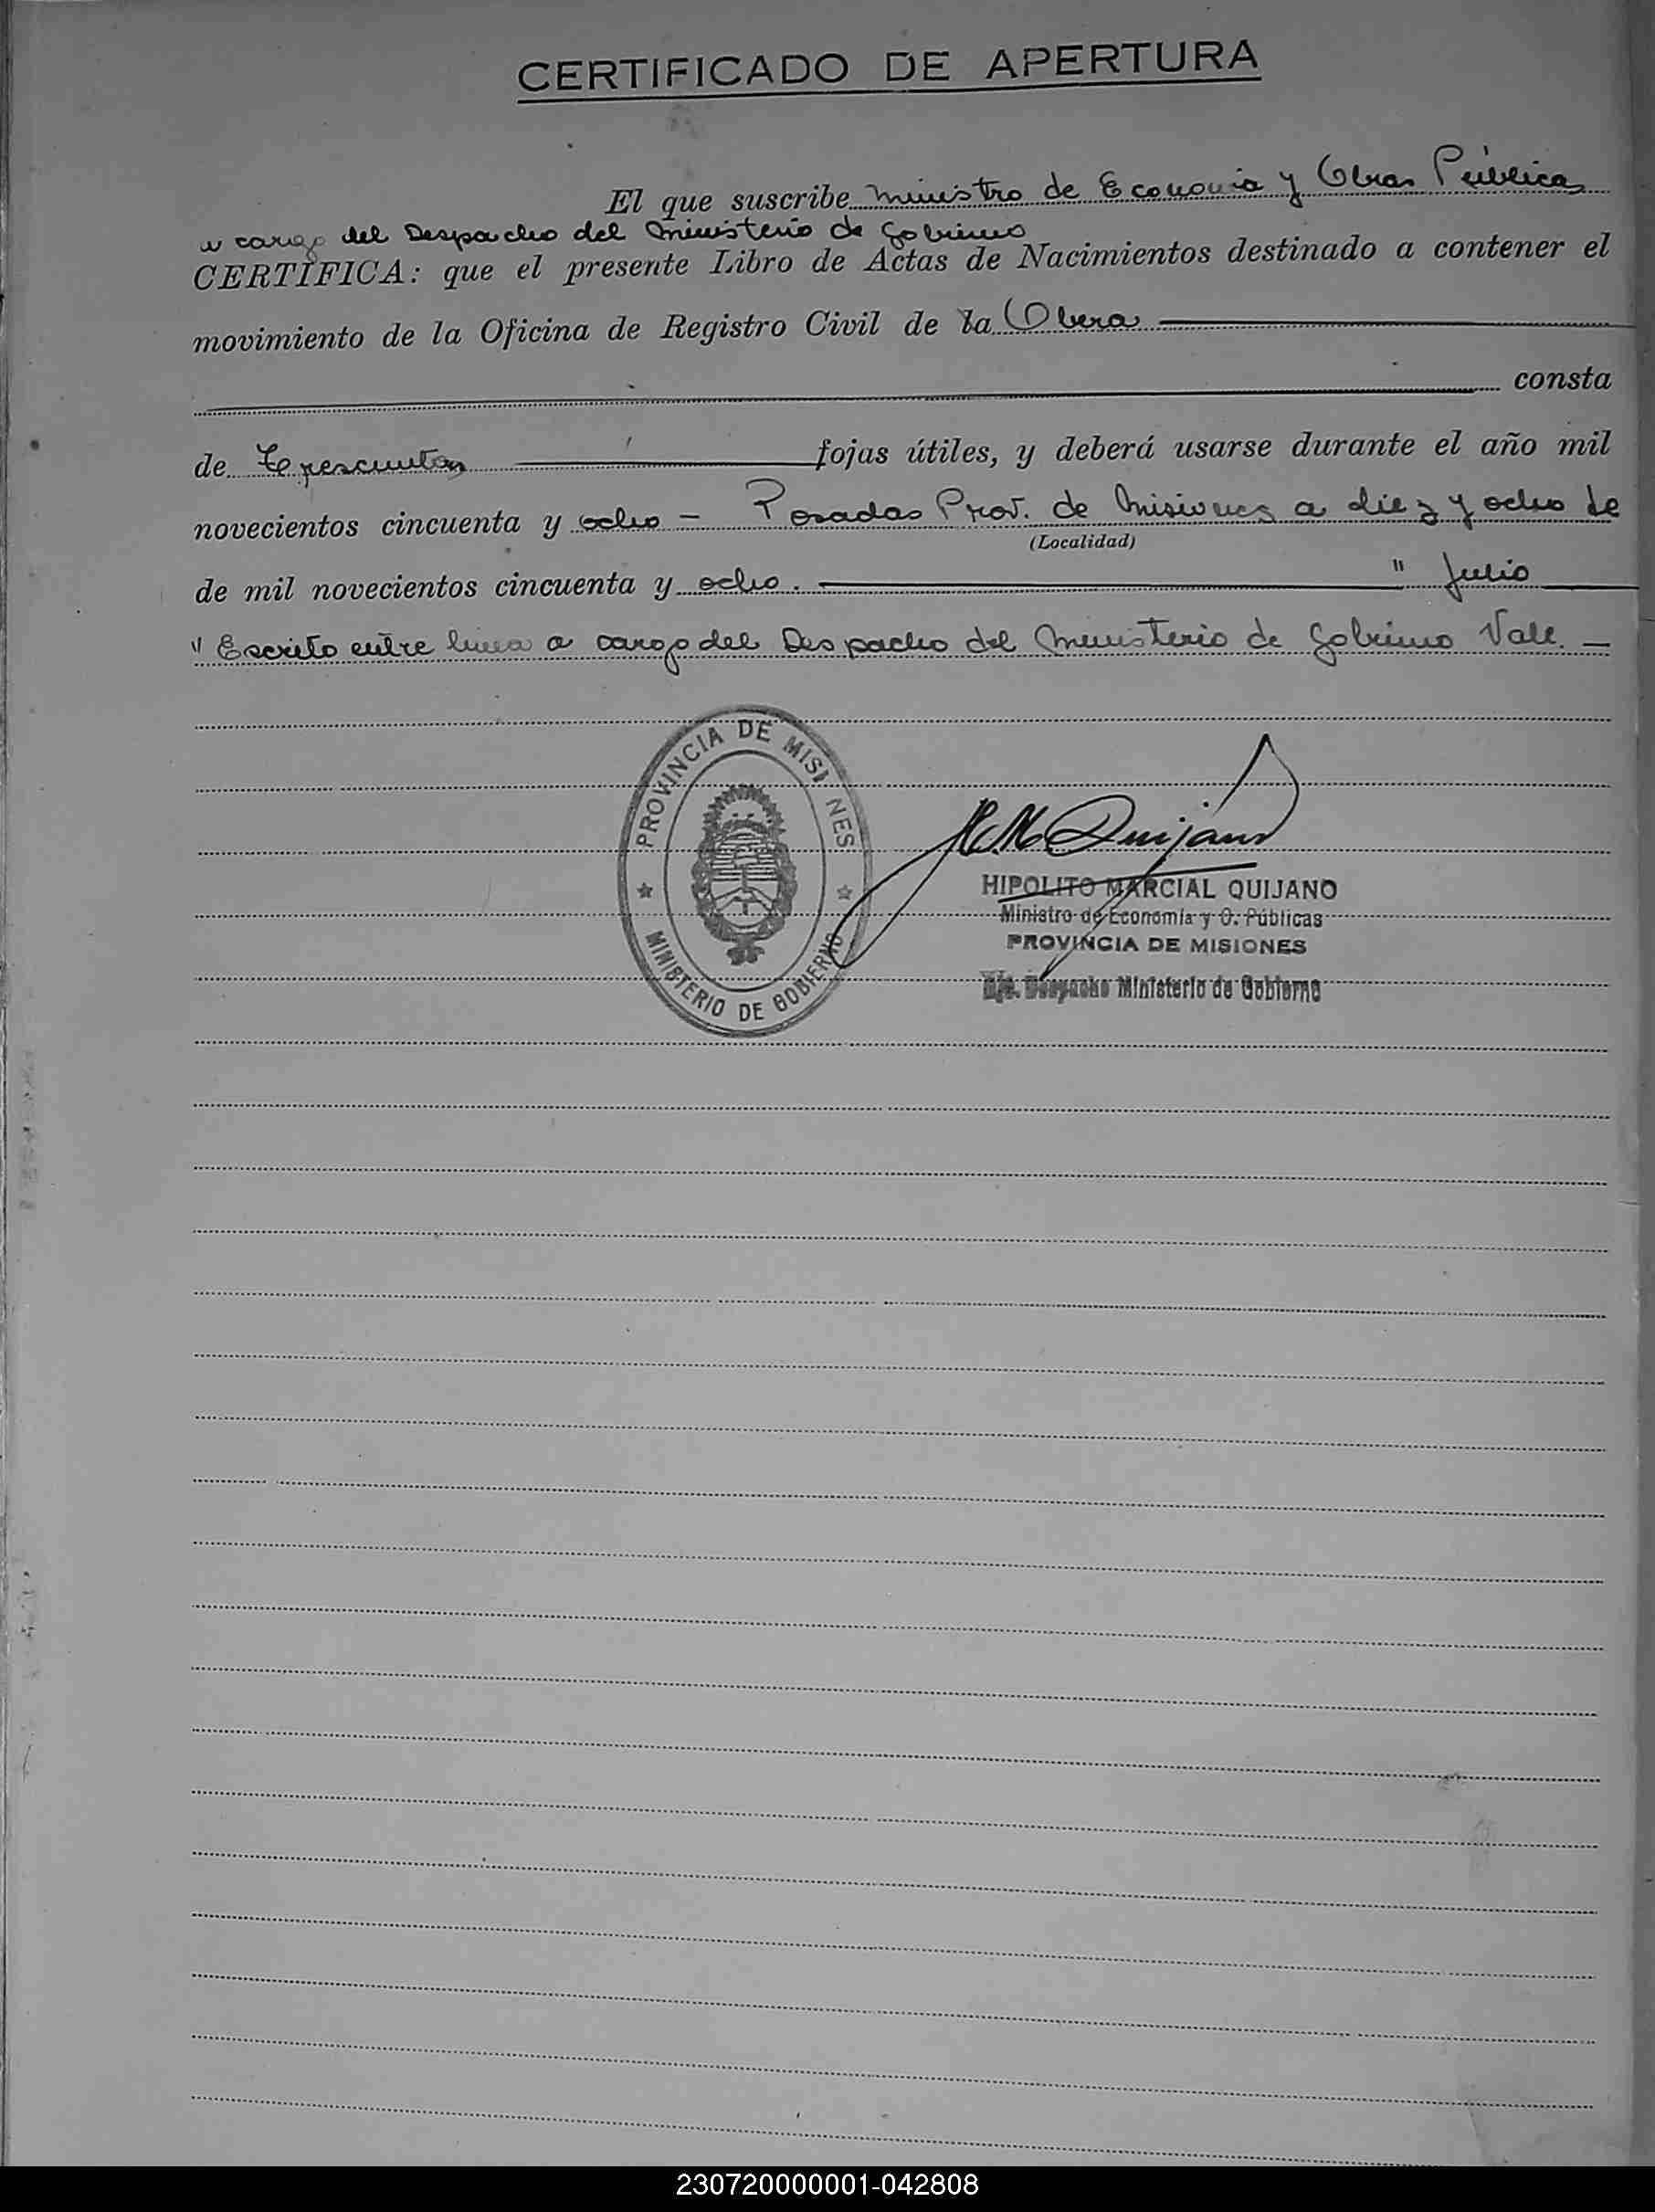 CERTIFICADO DE APERTURA
El que suscribe Ministro de Economía y Obras Públicas
a cargo del Despacho del Ministerio de Gobierno
CERTIFICA: que el presente Libro de Actas de Nacimientos destinado a contener el
movimiento de la Oficina de Registro Civil de la Obera
consta
de Trescientas fojas útiles, y deberá usarse durante el año mil
novecientos cincuenta y ocho - Posadas Prov. de Misiones a diez y ocho de
(Localidad)
de mil novecientos cincuenta y ocho. " Julio
" Escrito entre linea a cargo del Despacho del Ministerio de Gobierno Vale. -
PROVINCIA DE MISIONES
MINISTERIO DE GOBIERNO
H. M. Quijano
HIPOLITO MARCIAL QUIJANO
Ministro de Economía y O. Públicas
PROVINCIA DE MISIONES
Despacho Ministerio de Gobierno
230720000001-042808